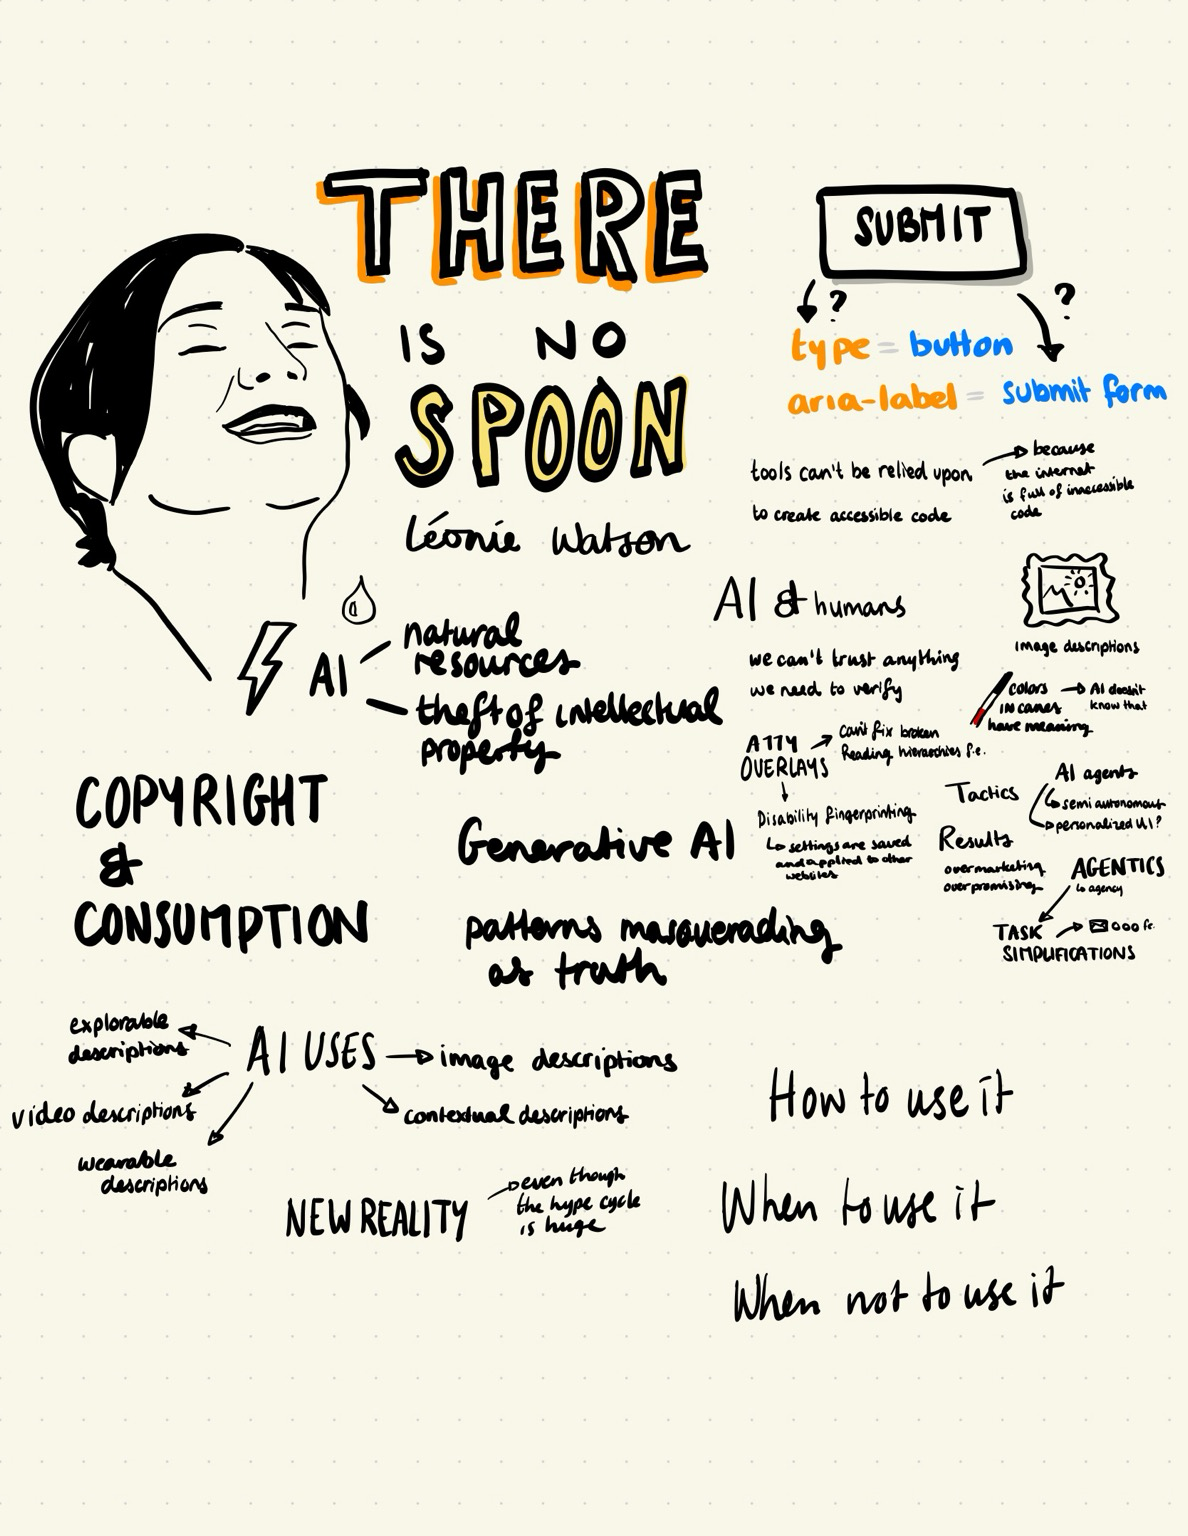 THERE
IS NO
SPOON
Léonie Watson
AI
natural
resources
theft of intellectual
property
COPYRIGHT
&
CONSUMPTION
Generative AI
patterns masquerading
as truth
AI USES
explorable
descriptions
video descriptions
wearable
descriptions
image descriptions
contextual descriptions
NEW REALITY
even though
the hype cycle
is huge
SUBMIT
?
?
type = button
aria-label = submit form
tools can't be relied upon
to create accessible code
because
the internet
is full of inaccessible
code
AI & humans
we can't trust anything
we need to verify
image descriptions
colors
in canes
have meaning
AI doesn't
know that
A11Y
OVERLAYS
can't fix broken
Reading hierarchies f.e.
Disability fingerprinting
settings are saved
and applied to other
websites
Tactics
Results
overmarketing
overpromising
AI agents
semi autonomout
personalized UI?
AGENTICS
agency
TASK
SIMPLIFICATIONS
How to use it
When to use it
When not to use it